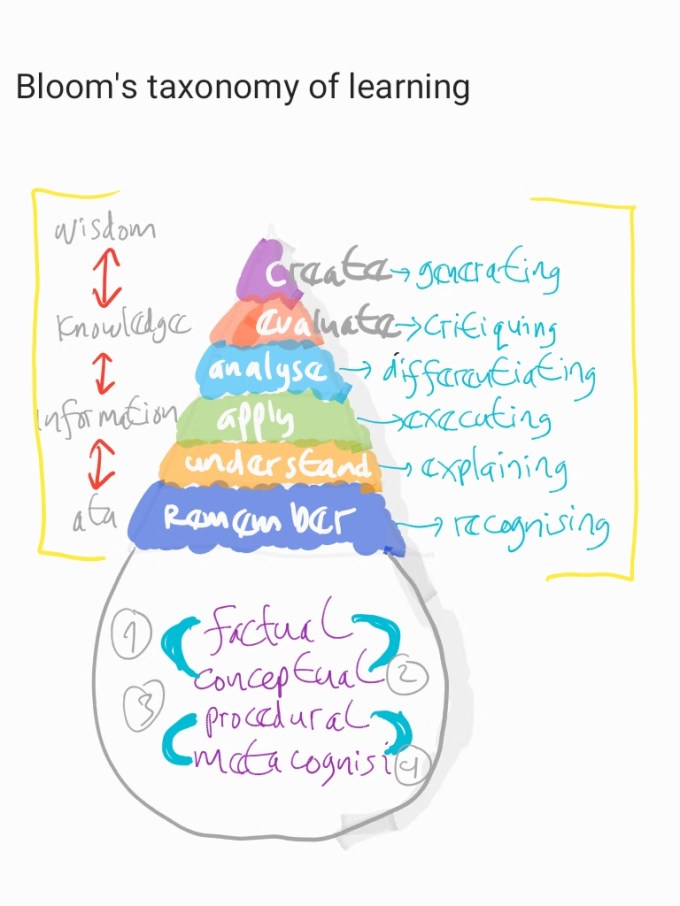 Bloom's taxonomy of learning
wisdom
create → generating
knowledge
evaluate → critiquing
analyse → differentiating
information
apply → executing
understand → explaining
ata
Remember → recognising
1
factual
conceptual 2
3
procedural
metacognisi 4